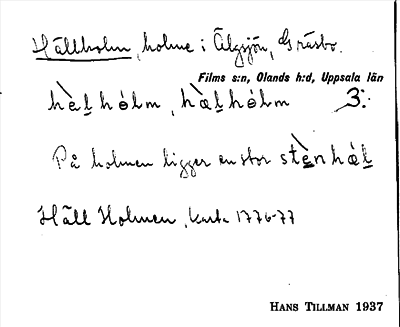 Hällholm, holme i Älgsjön, Gräsbo.
Films s:n, Olands h:d, Uppsala län
hæ̀ḷhólm, hæ̀ḷhólm 3:.
På holmen ligger en stor stènhæ̀ḷ
Häll Holmen, karta 1776-77
HANS TILLMAN 1937